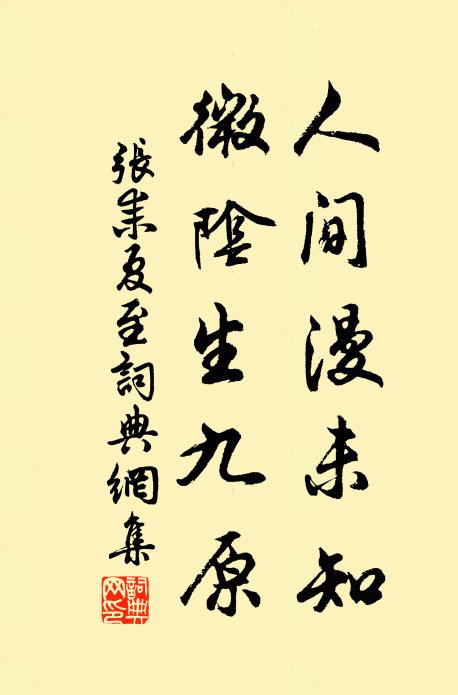 人间漫未知
微陰生九原
張耒夏至詞典網集
詞典網印